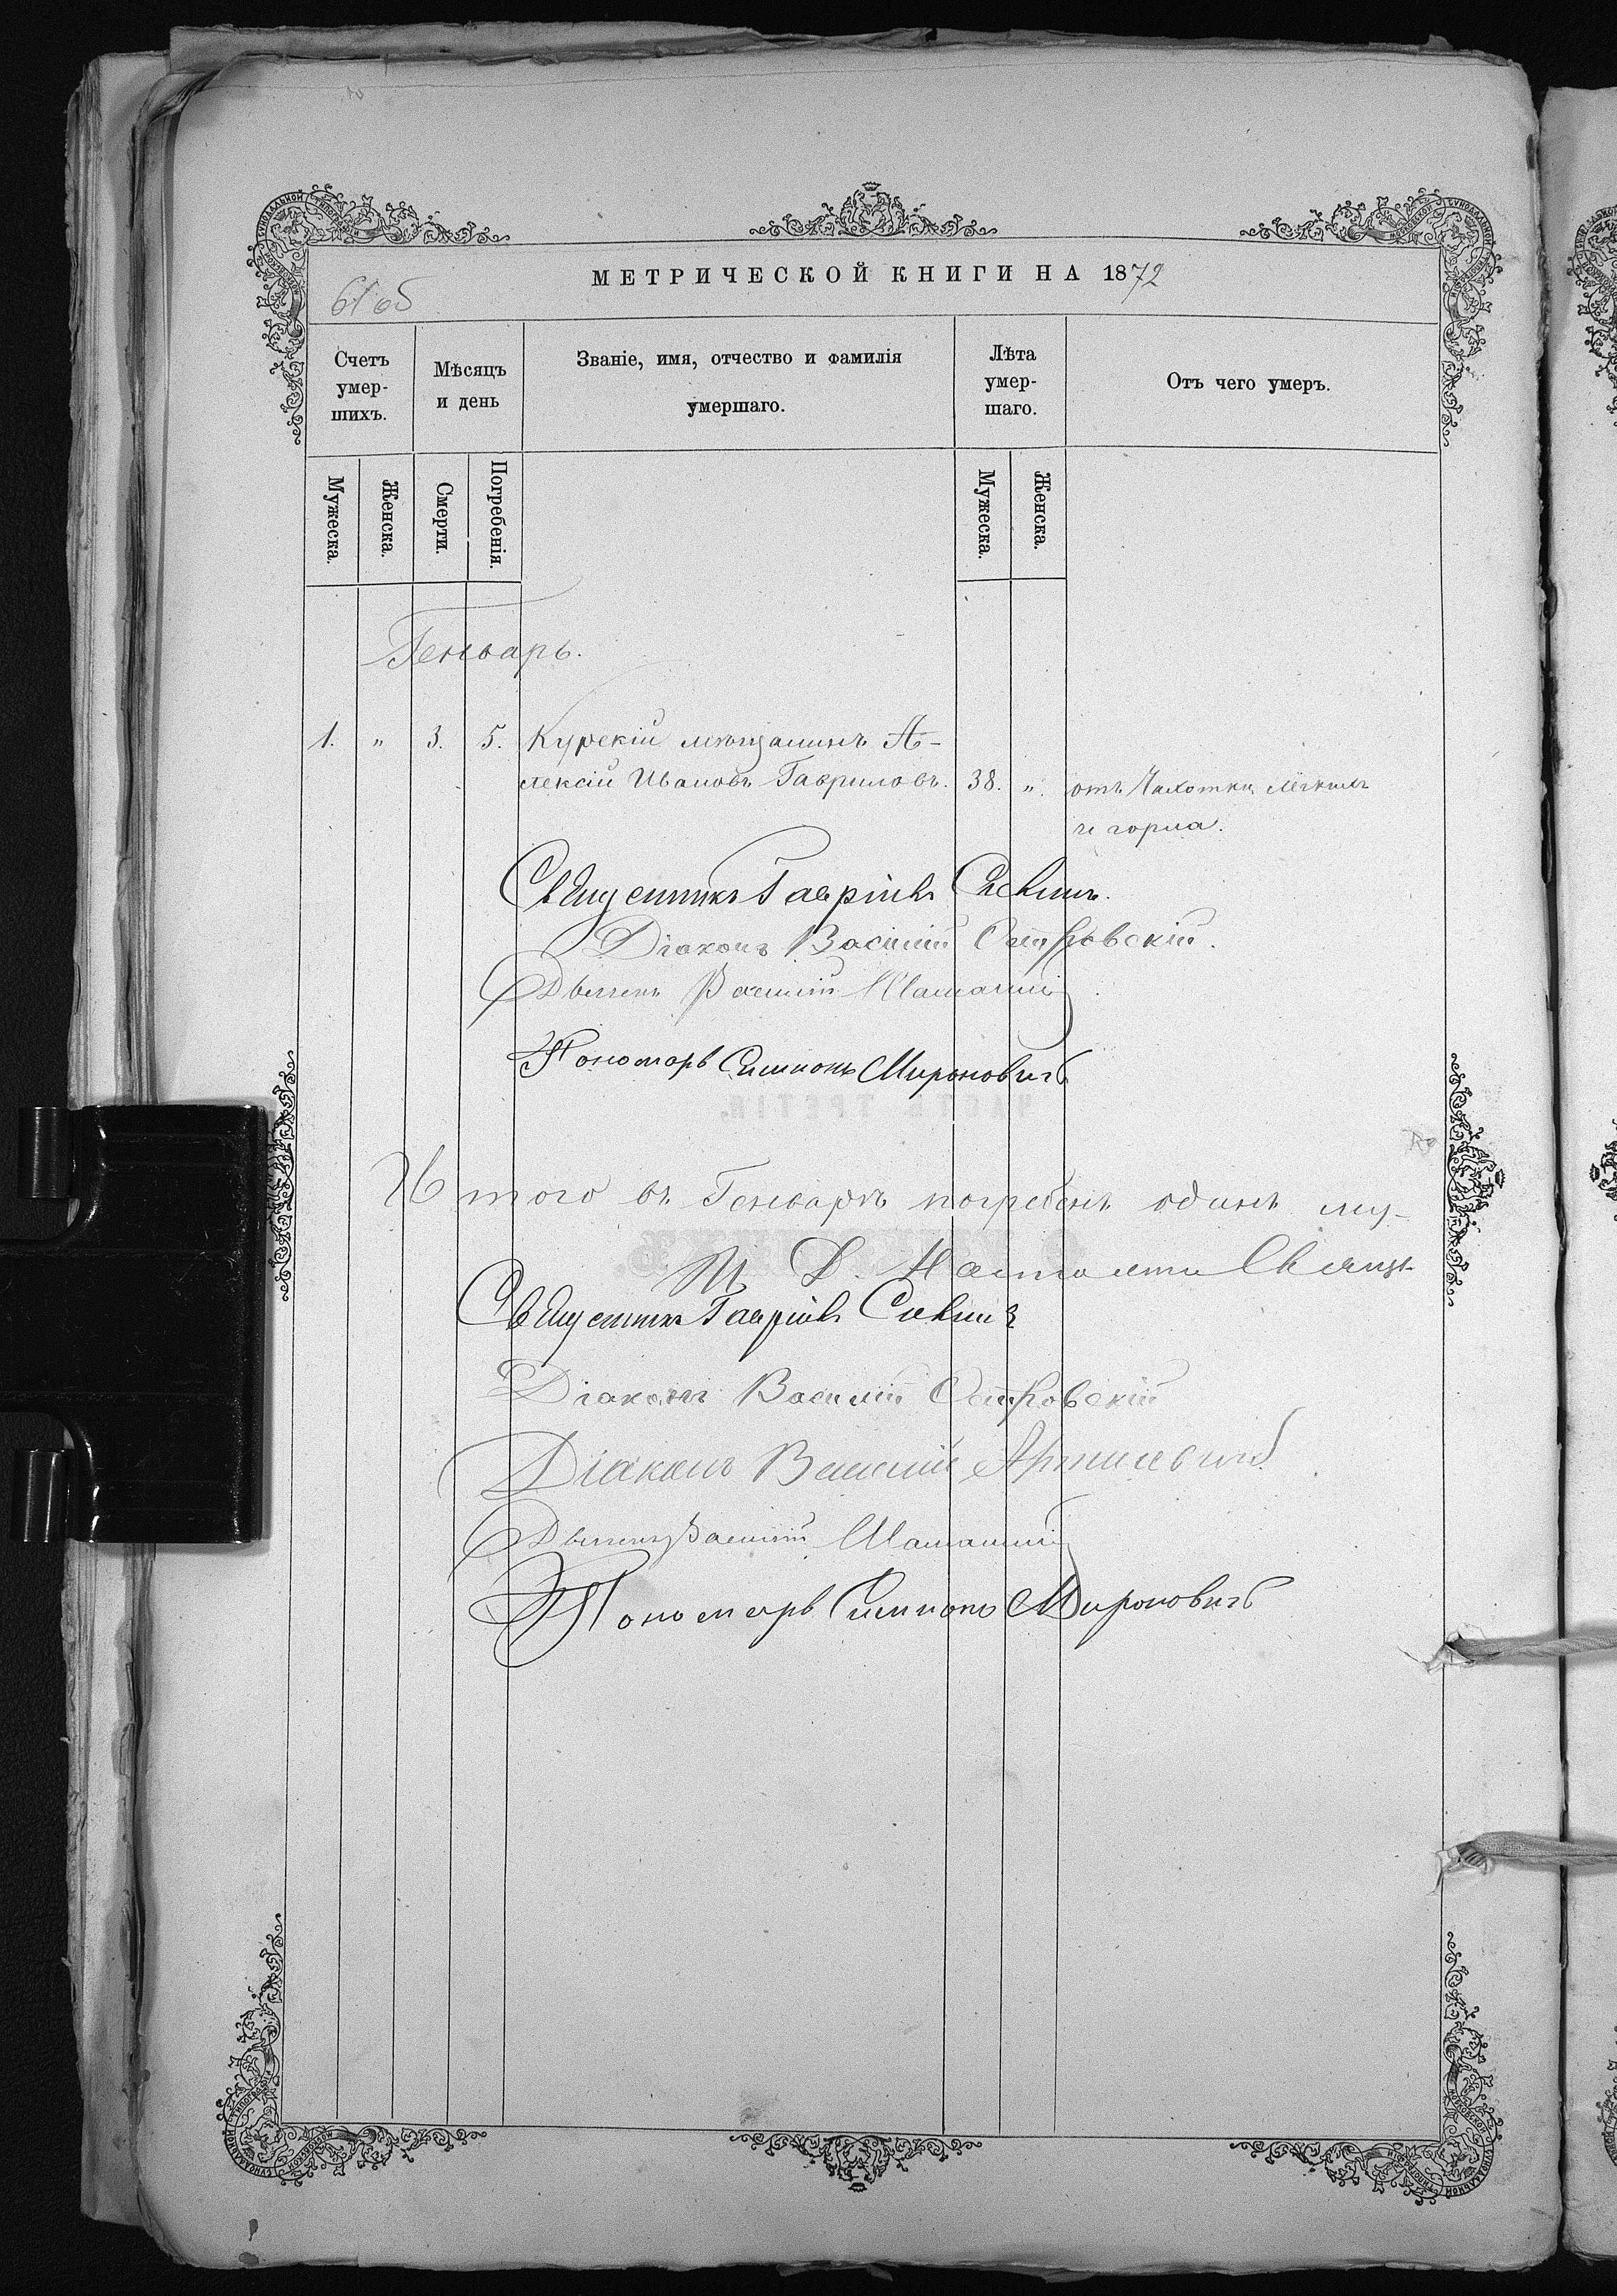 МЕТРИЧЕСКОЙ КНИГИ НА 1872
61 об
Счетъ умер-шихъ.
Мѣсяцъ и день
Званіе, имя, отчество и фамилія
умершаго.
Лѣта умер-шаго.
Отъ чего умеръ.
Мужеска.
Женска.
Смерти.
Погребенія.
Мужеска.
Женска.
Генварь.
1. " 3. 5. Курскій мѣщанинъ А-
лексій Ивановъ Гавриловъ. 38. ". отъ Чахотки лёгкихъ
и горла.
Священникъ Гавріилъ
Діаконъ Василій Островскій.
Дьячекъ Василій
Пономарь Симеонъ Мироновичъ
Итого въ Генварѣ погребенъ одинъ му-
Священникъ Гавріилъ
Діаконъ Василій Островскій
Діаконъ Василій
Дьячекъ Василій
Пономарь Симеонъ Мироновичъ